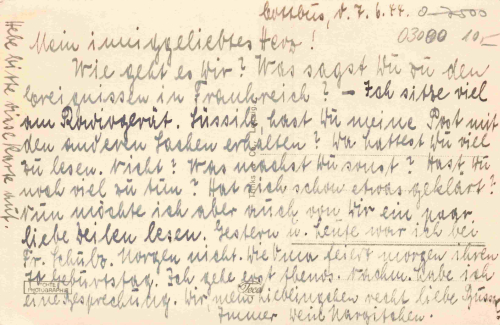 Cottbus, d. 7.6.44.
03000 10.-
Mein inniggeliebtes Herz!
Wie geht es Dir? Was sagst Du zu den
Ereignissen in Frankreich? – Ich sitze viel
am Radiogerät. Süssile, hast Du meine Post mit
den anderen Sachen erhalten? Da hattest Du viel
zu lesen. Nicht? Was machst Du sonst? Hast Du
noch viel zu tun? Hat sich schon etwas geklärt?
Nun möchte ich aber auch von Dir ein paar
liebe Zeilen lesen. Gestern u. heute war ich bei
Fr. Schulz. Morgen nicht. Die Oma feiert morgen ihren
Geburtstag. Ich gehe erst abends. Nachm. habe ich
eine Besprechung. Dir, mein Lieblingchen recht liebe Grüsse
Immer Dein Margitchen.
Hebe bitte diese Karte auf.